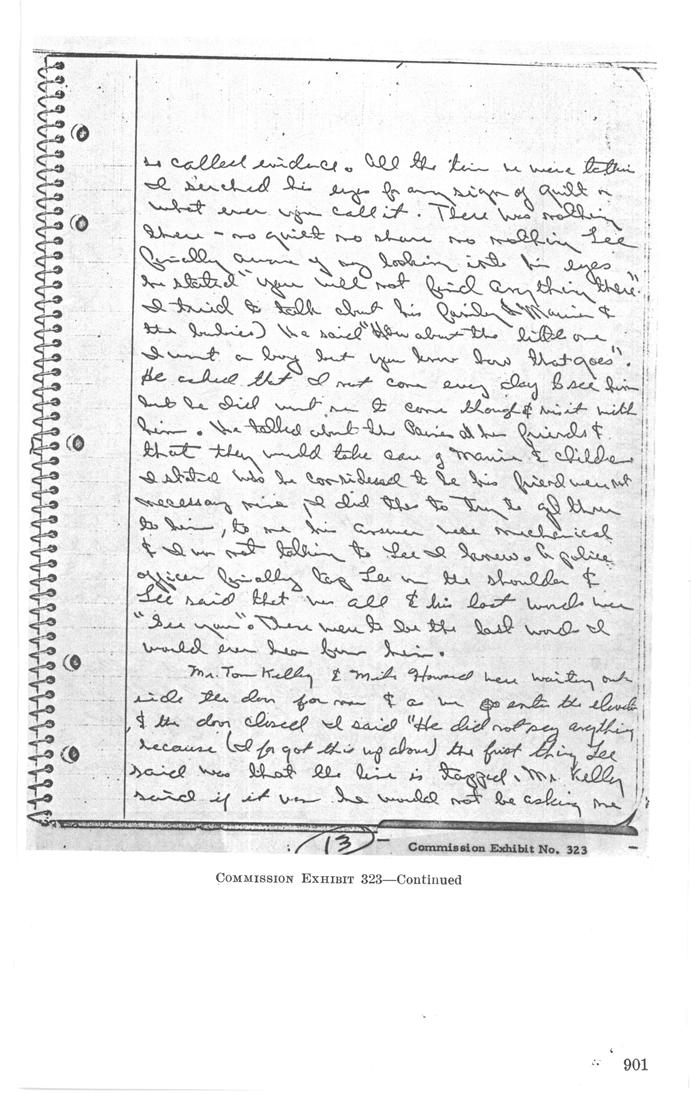 so called evidence. All the time we were talkin
I serched his eyes for any sign of guilt or
what ever you call it. There was nothing
there - no guilt no shame no nothing Lee
finally aware of my looking into his eyes
he stated "you will not find anything there"
I tried to talk about his family (Marina &
the babies) He said "How about the little one
I want a boy but you know how that goes".
He asked that I not come every day to see him
but he did want me to come though & visit with
him. He talked about the Paines as his friends &
that they would take care of Marina & children
I stated who he considered to be his friend were not
necessary mine I did this to try to get thru
to him, to me his answer were mechanical
& I was not talking to Lee I knew. A police
officer finally tap Lee on the shoulder &
Lee said that was all & his last words were
"See you". These were to be the last words I
would ever hear from him.
Mr. Tom Kelly & Mike Howard were waiting out
side the door for me & as we enter the elevator
& the door closed I said "He did not say anything
because (I forgot this up above) the first thing Lee
said was that the line is tapped. Mr. Kelly
said if it was he would not be asking me
13
Commission Exhibit No. 323
COMMISSION EXHIBIT 323—Continued
901